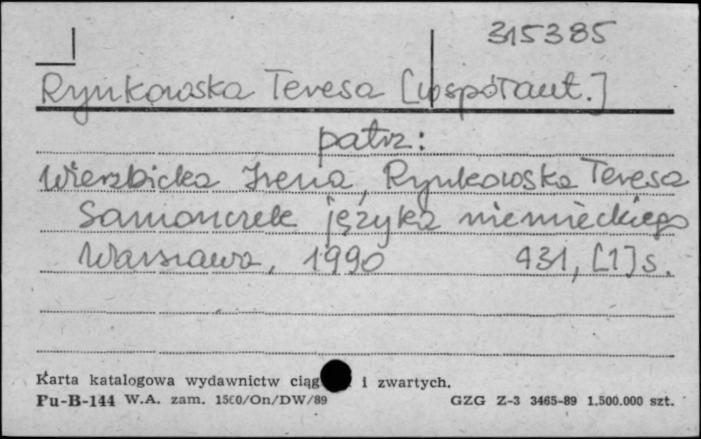 315385
Rynkowska Teresa [współaut.]
patrz:
Wierzbicka Irena, Rynkowska Teresa
Samouczek języka niemieckiego
Warszawa, 1990 431, [1] s.
Karta katalogowa wydawnictw ciąg i zwartych.
Pu-B-144 W.A. zam. 1500/On/DW/89 GZG Z-3 3465-89 1.500.000 szt.